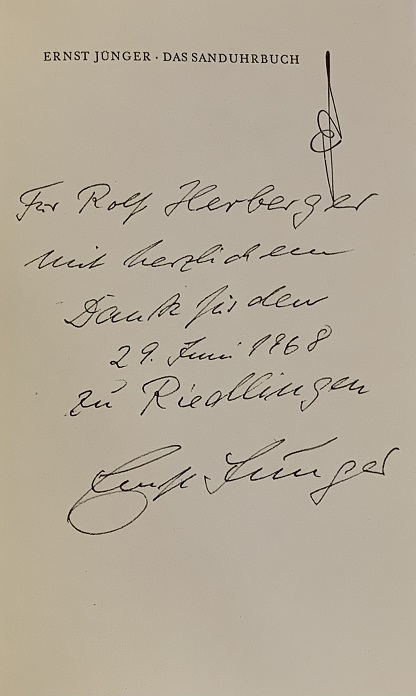 ERNST JÜNGER · DAS SANDUHRBUCH
Für Rolf Herberger
mit herzlichem
Dank für den
29. Juni 1968
zu Riedlingen
Ernst Jünger